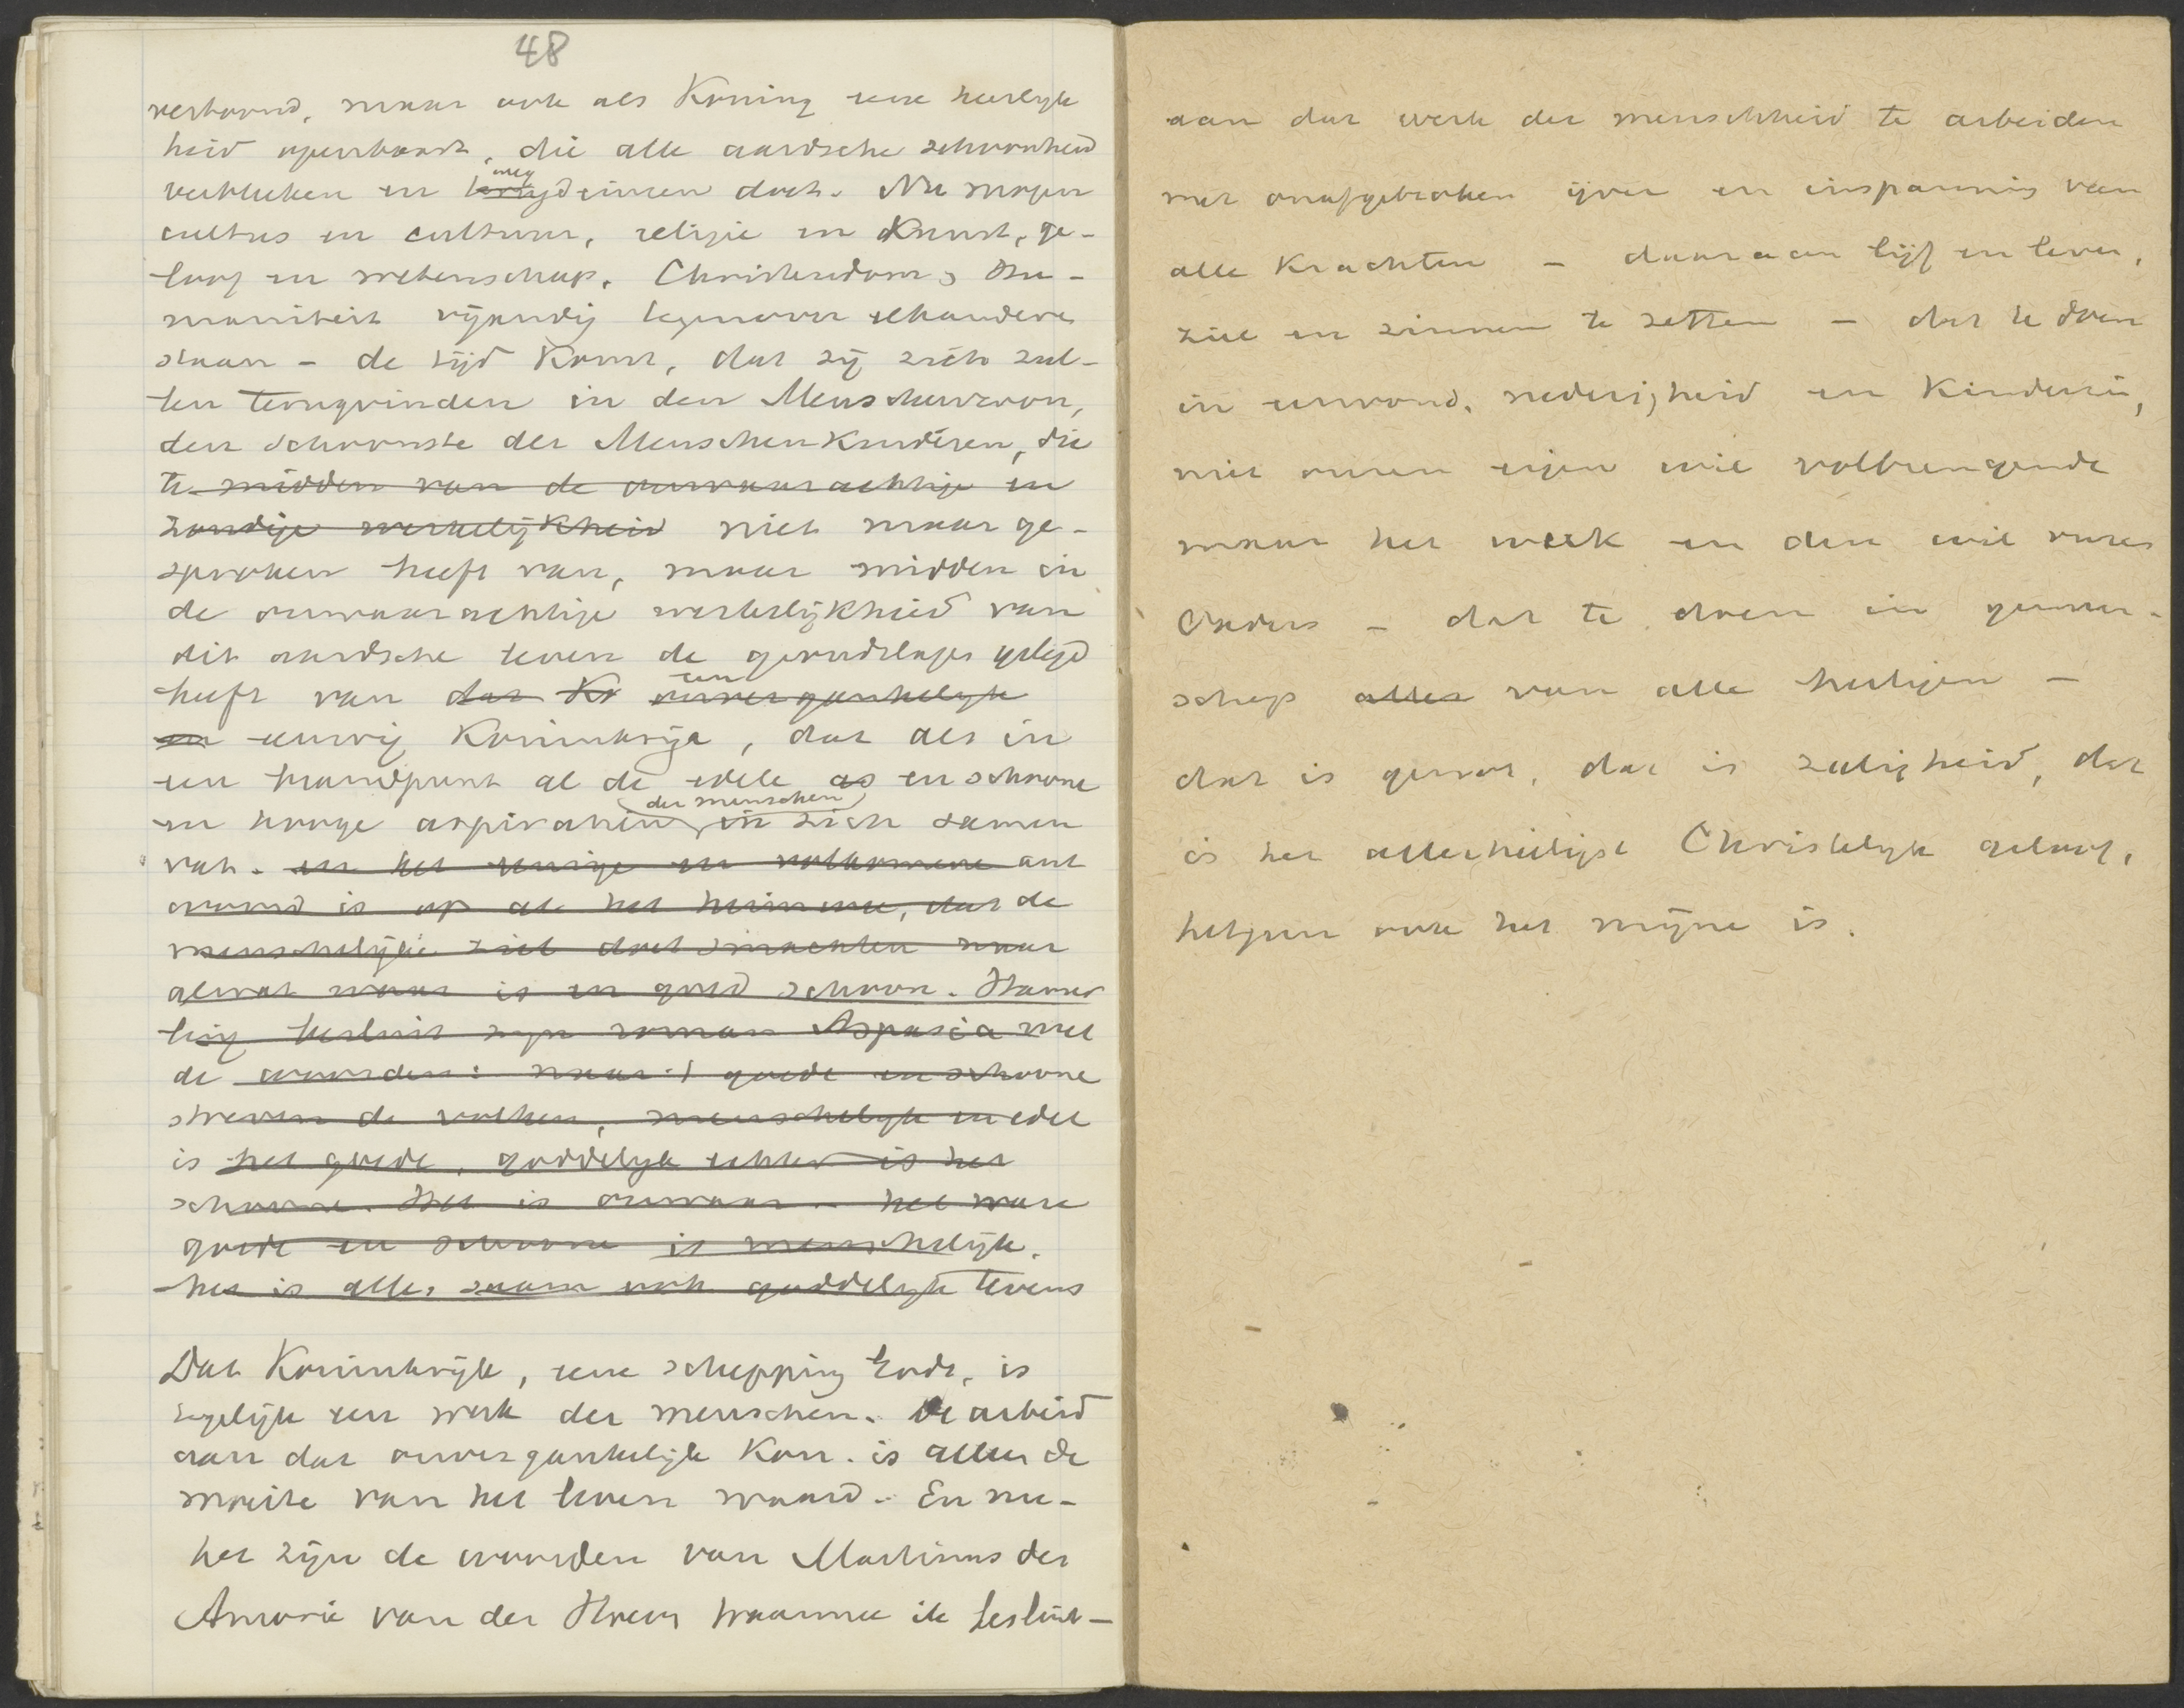 48
vertoond, maar ook als Koning eene heerlyk
heid openbaart, die alle aardsche schoonheid
verbleken en terug weg deinzen doet. Nu mogen
cultus en cultuur, religie en Kunst, ge-
loof en wetenschap, Christendom, Hu-
maniteit vijandig tegenover elkander
staan - de tijd Komt, dat zij zich zul-
len terugvinden in den Menschenzoon,
den Schoonste der MenschenKinderen, die
te midden van de onwaarachtige en
zondige werkelijkheid niet maar ge-
sproken heeft van, maar midden in
de onwaarachtige werkelijkheid van
dit aardsche leven de grondslagen gelegd
heeft van dat Ko een onvergankelyk
en eeuwig Koninkrijk, dat als in
een brandpunt al de edele as en schoone
en hooge aspiratien der menschen in zich samen
vat. en het eenige en volkomene ant
woord is op al het heimwee, dat de
menschelijke ziel doet smachten naar
al wat waar is en goed schoon. Hamer
ling besluit zijn roman Aspasia met
de woorden: naar 't goede en schoone
streven de volken, menschelyk en edel
is het goede, goddelyk echter is het
schoone. Het is onwaar. het ware
goede en schoone is menschelijk.
het is alles saam ook goddelyk tevens
Dat Koninkrijk, eene schepping Gods, is
tegelijk een werk der menschen. De arbeid
aan dat onvergankelijk Kon. is alleen de
moeite van het leven waard. En nu-
het zijn de woorden van Martinus des
Amorie van der Hoeven waarmee ik besluit—
aan dat werk der menschheid te arbeiden
met onafgebroken ijver en inspanning van
alle Krachten - daaraan lijf en leven,
ziel en zinnen te zetten - dat te doen
in eenvoud, nederigheid en Kinderzin,
niet onzen eigen wil volbrengende
maar het werk en den wil onzes
Vaders - dat te doen in gemeen-
schap alles van alle heiligen —
dat is genot, dat is zaligheid, dat
is het allerheiligst Christelyk geloof,
hetgeen ook het mijne is.